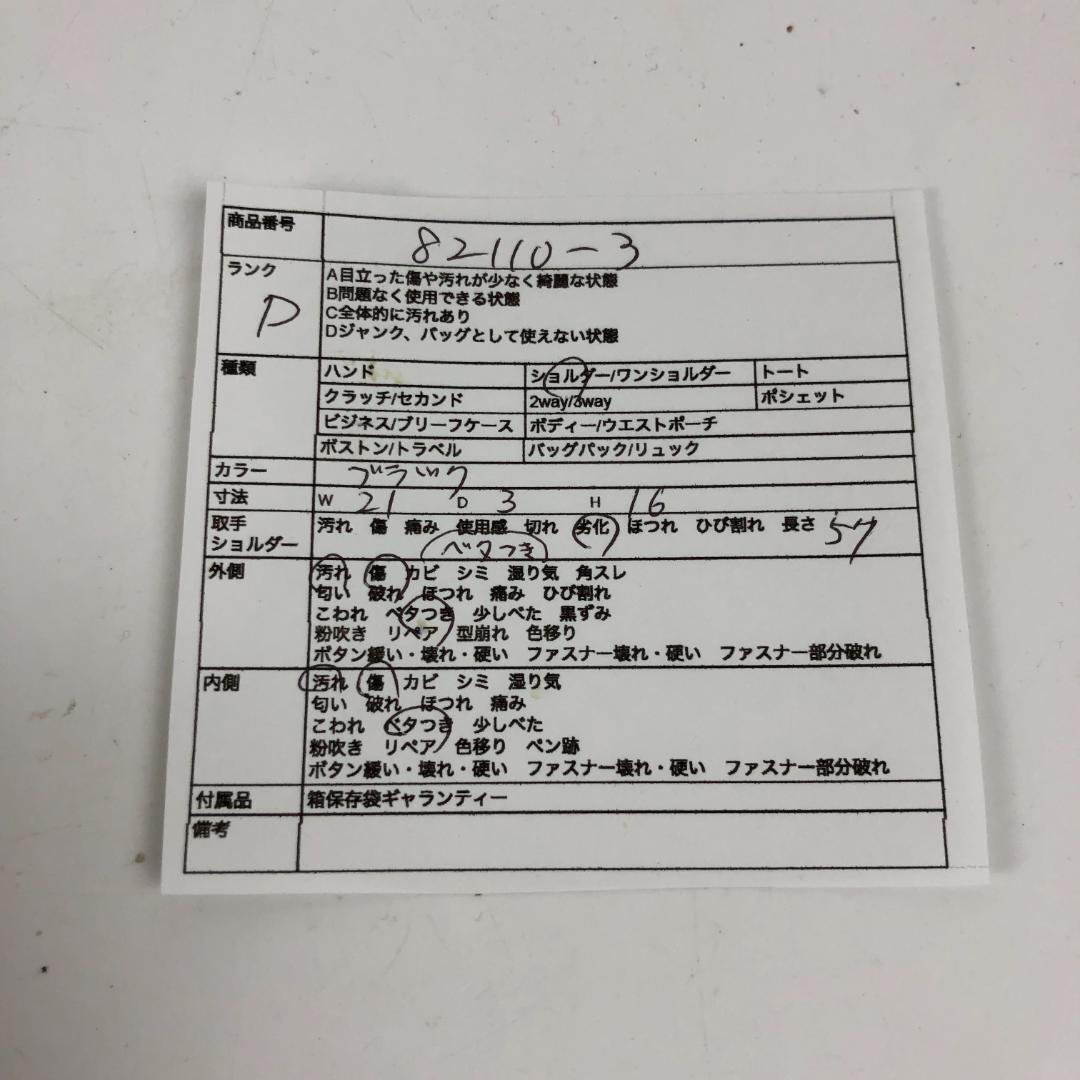 商品番号 82110-3
ランク D
A目立った傷や汚れが少なく綺麗な状態
B問題なく使用できる状態
C全体的に汚れあり
Dジャンク、バッグとして使えない状態
種類 ハンド ショルダー/ワンショルダー トート
クラッチ/セカンド 2way/3way ポシェット
ビジネス/ブリーフケース ボディー/ウエストポーチ
ボストン/トラベル バッグパック/リュック
カラー ブラック
寸法 W 21 D 3 H 16
取手 汚れ 傷 痛み 使用感 切れ 劣化 ほつれ ひび割れ 長さ 57
ショルダー ベタつき
外側 汚れ 傷 カビ シミ 湿り気 角スレ
匂い 破れ ほつれ 痛み ひび割れ
こわれ ベタつき 少しべた 黒ずみ
粉吹き リペア 型崩れ 色移り
ボタン緩い・壊れ・硬い ファスナー壊れ・硬い ファスナー部分破れ
内側 汚れ 傷 カビ シミ 湿り気
匂い 破れ ほつれ 痛み
こわれ ベタつき 少しべた
粉吹き リペア 色移り ペン跡
ボタン緩い・壊れ・硬い ファスナー壊れ・硬い ファスナー部分破れ
付属品 箱保存袋ギャランティー
備考